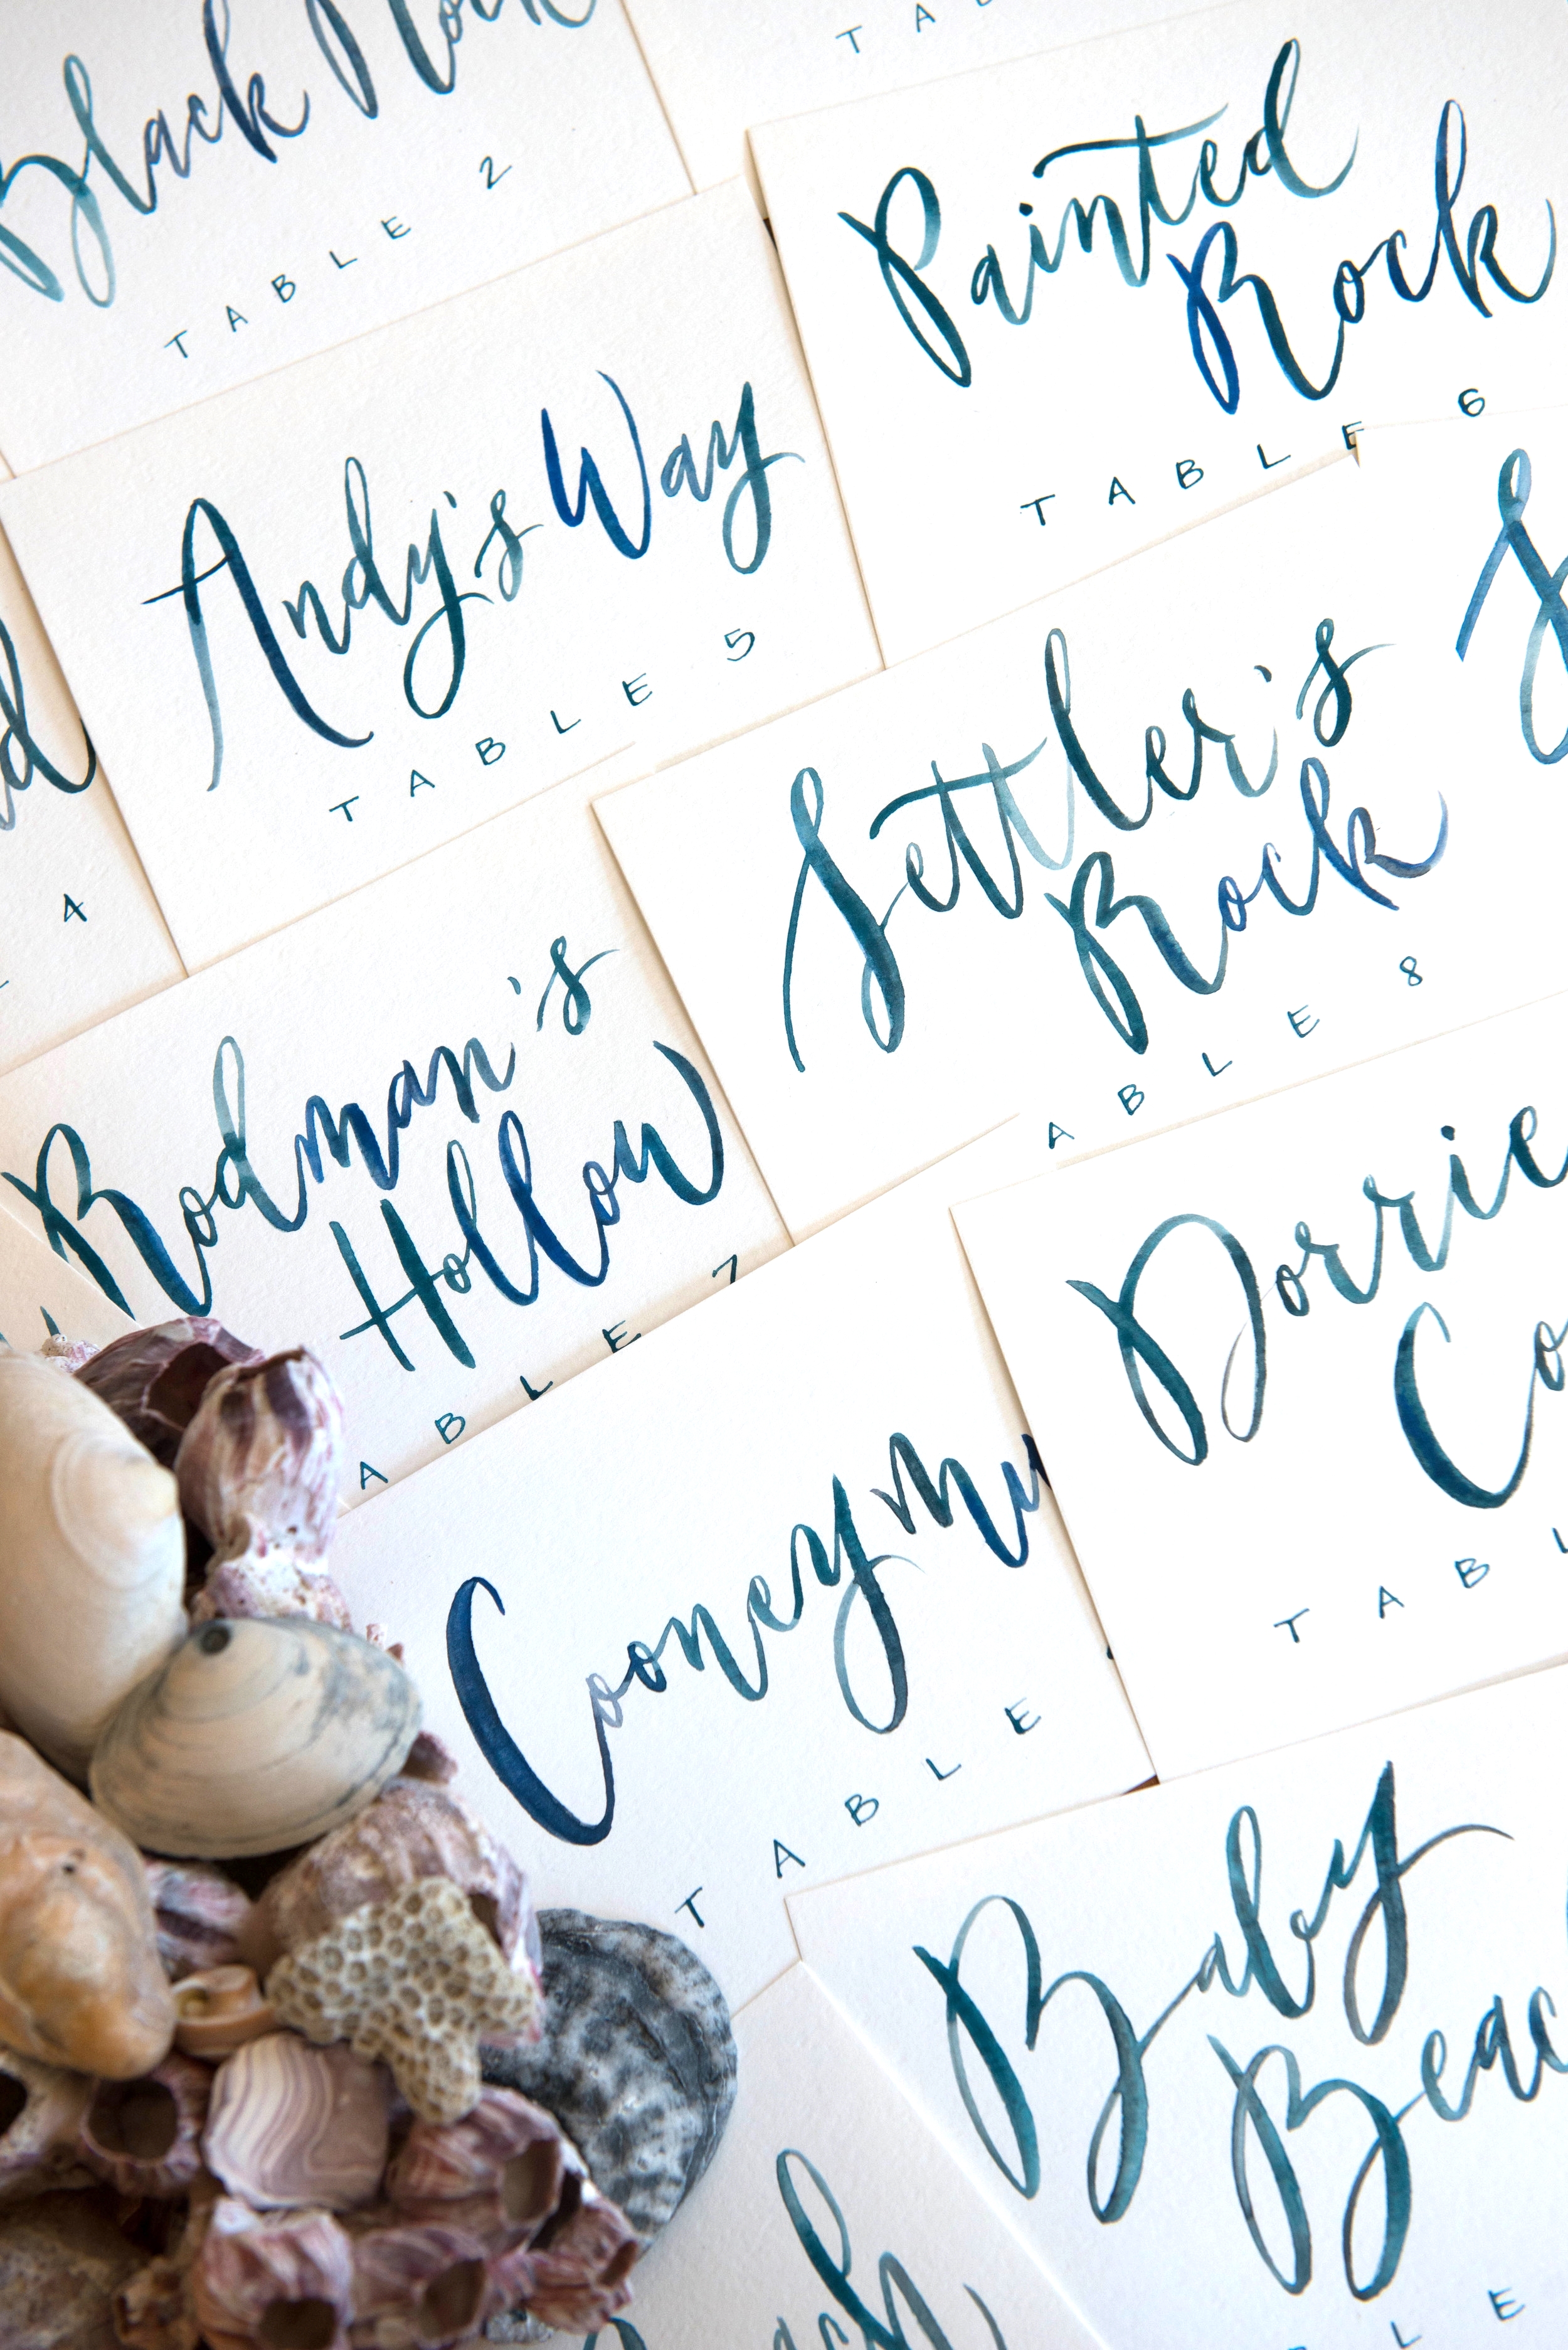 Black Rock
TABLE 2
TAB
Painted
Rock
TABLE 6
Andy's Way
TABLE 5
d
4
Settler's
Rock
ABLE 8
S
Rodman's
Hollow
ABLE 7
Dorrie
Co
TABL
Cooneymu
TABLE
Baby
Beac
LE
ach